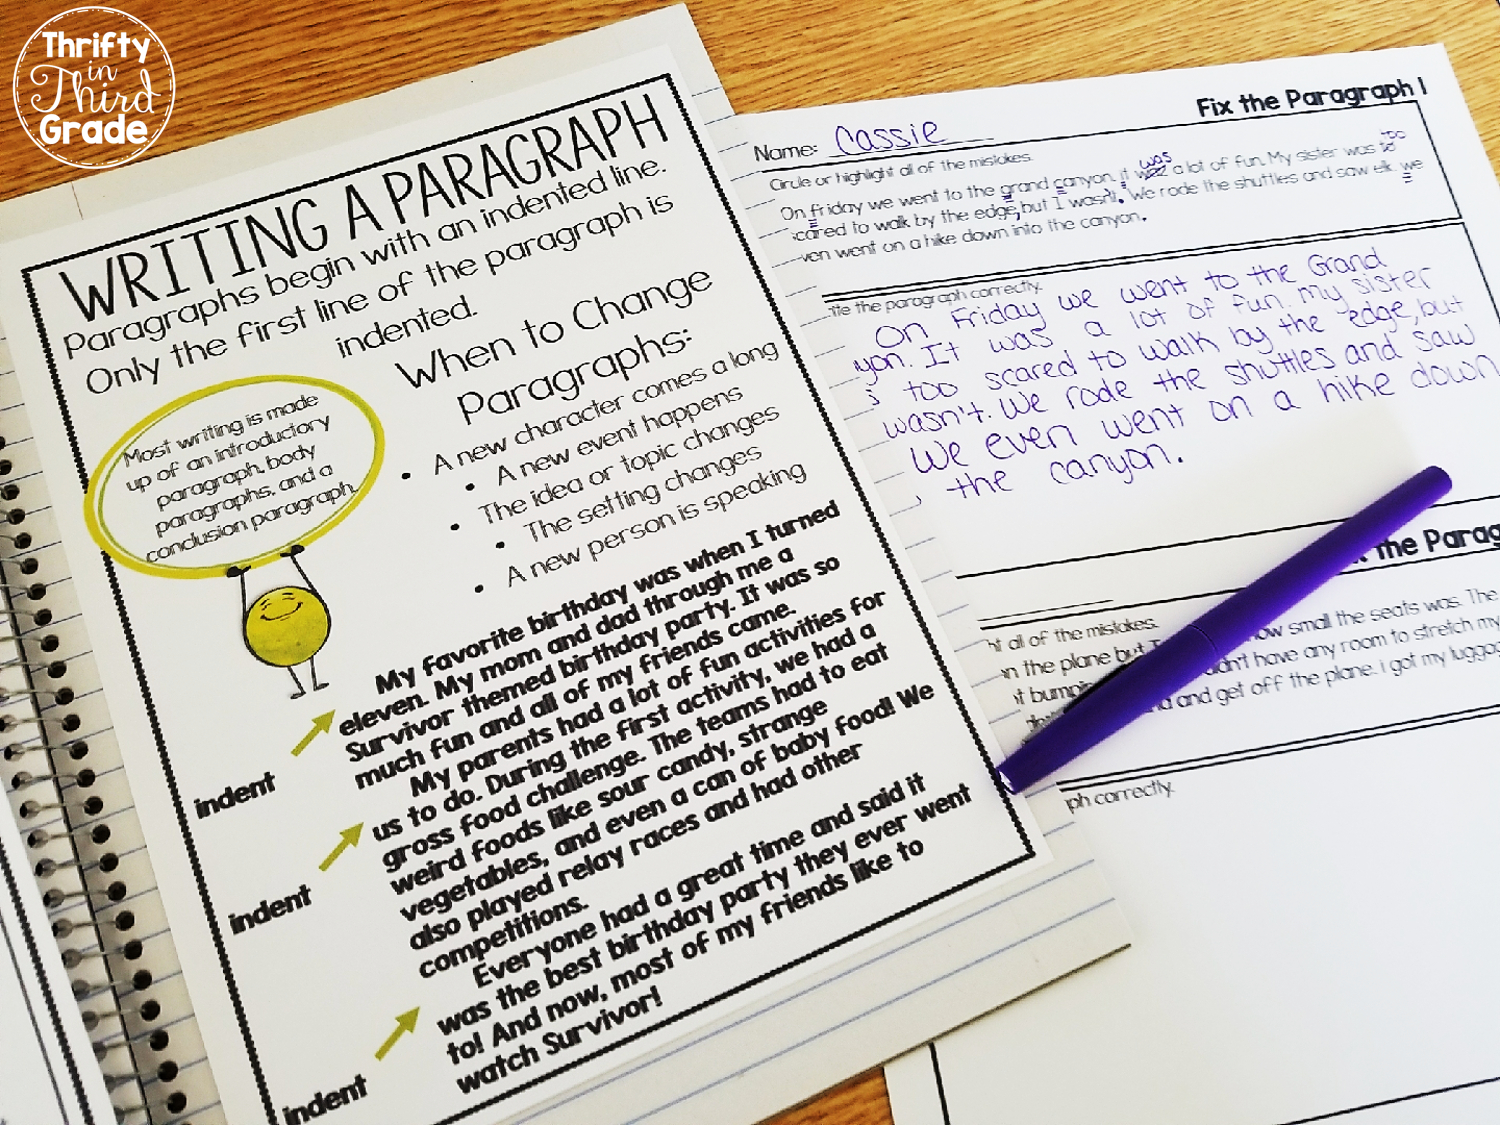 Thrifty
in
Third
Grade
WRITING A PARAGRAPH
Paragraphs begin with an indented line.
Only the first line of the paragraph is
indented.
Most writing is made
up of an introductory
paragraph, body
paragraphs, and a
conclusion paragraph.
When to Change
Paragraphs:
• A new character comes a long
• A new event happens
• The idea or topic changes
• The setting changes
• A new person is speaking
My favorite birthday was when I turned
eleven. My mom and dad through me a
Survivor themed birthday party. It was so
much fun and all of my friends came.
My parents had a lot of fun activities for
us to do. During the first activity, we had a
gross food challenge. The teams had to eat
weird foods like sour candy, strange
vegetables, and even a can of baby food! We
also played relay races and had other
competitions.
Everyone had a great time and said it
was the best birthday party they ever went
to! And now, most of my friends like to
watch Survivor!
indent
indent
indent
Fix the Paragraph 1
Name: Cassie
Circle or highlight all of the mistakes.
was
too
On friday we went to the grand canyon, it a lot of fun. My sister was
scared to walk by the edge, but I wasn't. We rode the shuttles and saw elk. we
even went on a hike down into the canyon.
the paragraph correctly.
On Friday we went to the Grand
yon. It was a lot of fun. My sister
s too scared to walk by the edge, but
wasn't. We rode the shuttles and saw
We even went on a hike down
the canyon.
the Parag
all of the mistakes.
on the plane but how small the seats was. The
didn't have any room to stretch my
and get off the plane. i got my luggag
ph correctly.